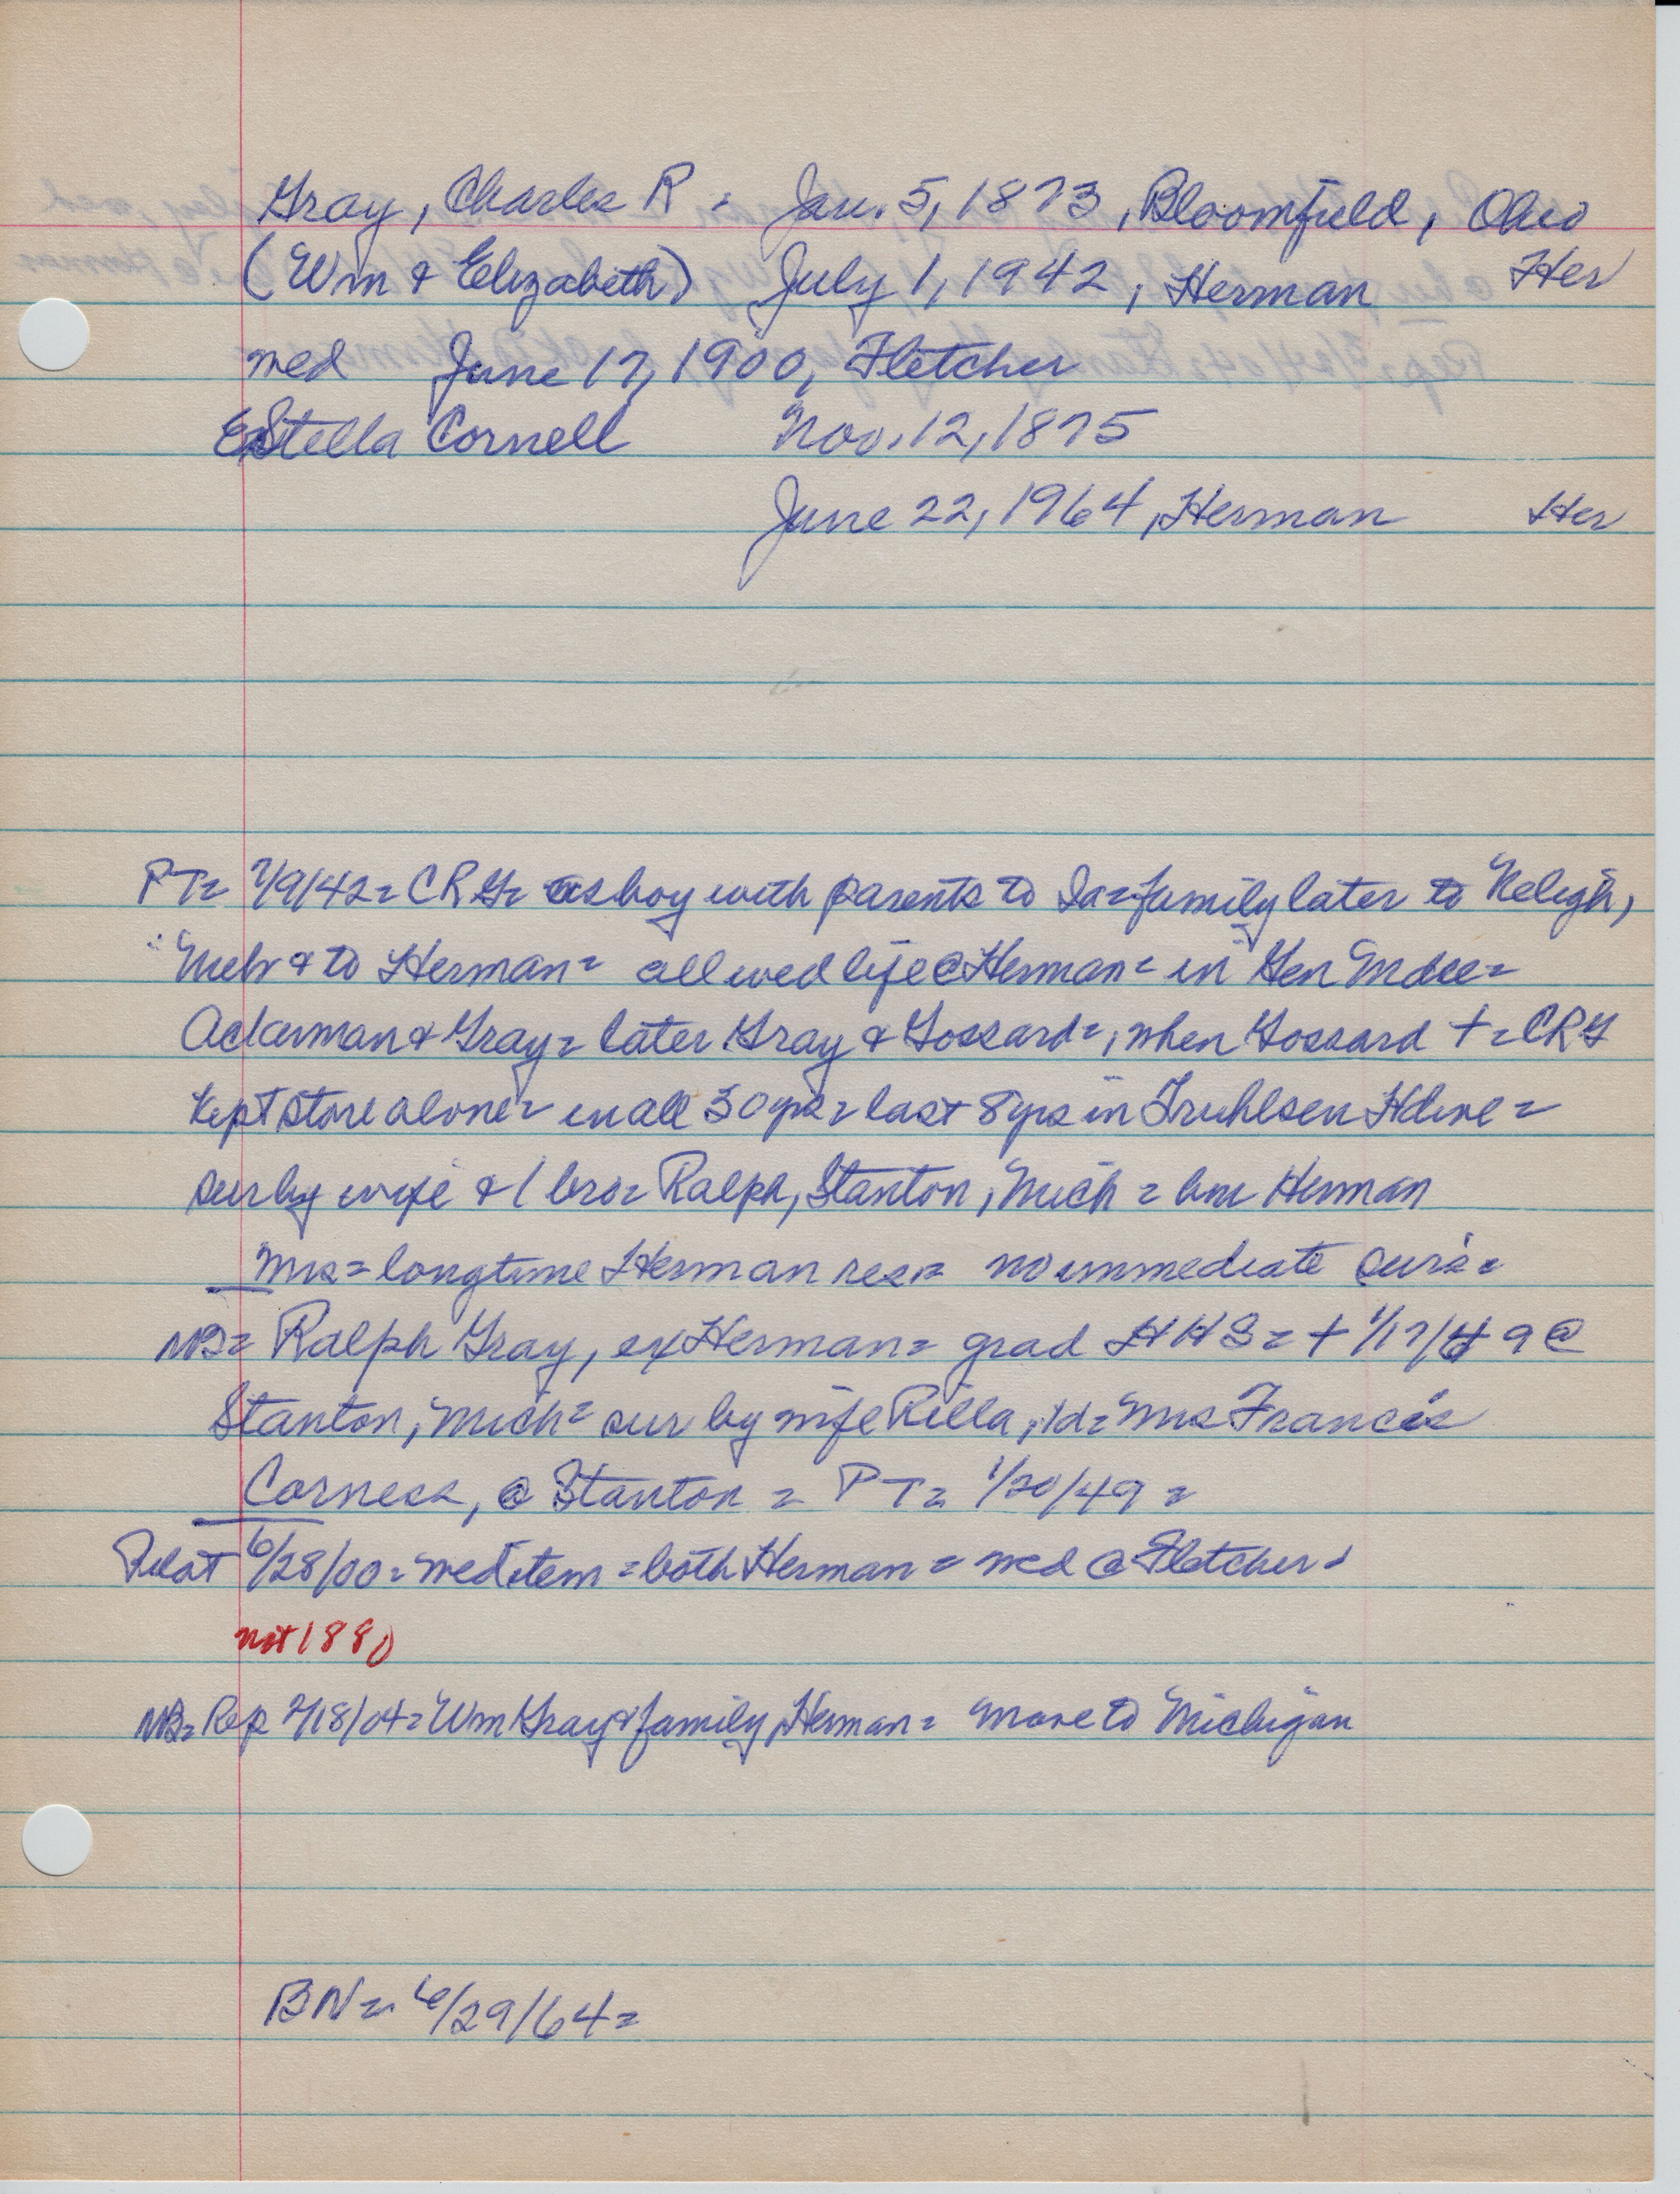 Gray, Charles R = Jan. 5, 1873, Bloomfield, Ohio
(Wm & Elizabeth) July 1, 1942, Herman Her
wed June 17, 1900, Fletcher
Estella Cornell Nov. 12, 1875
June 22, 1964, Herman Her
PT= 7/9/42= CRG= as boy with parents to Ia= family later to Neligh,
Nebr & to Herman= all wed life @ Herman= in Gen Mdse=
Ackerman & Gray= later Gray & Gossard=, when Gossard += CRG
kept store alone= in all 30 yrs= last 8 yrs in Truhlsen Hdwe=
sur by wife & 1 bro= Ralph, Stanton, Mich = bur Herman
Mrs= longtime Herman res= no immediate surs=
NB= Ralph Gray, ex Herman= grad HHS= + 1/17/49 @
Stanton, Mich= sur by wife Rilla, 1d= Mrs Francis
Corness, @ Stanton = PT= 1/20/49=
Pilot 6/28/00= wed item= both Herman= wed @ Fletcher=
not 1880
NB= Rep 2/18/04= Wm Gray & family, Herman= move to Michigan
BN= 6/29/64=